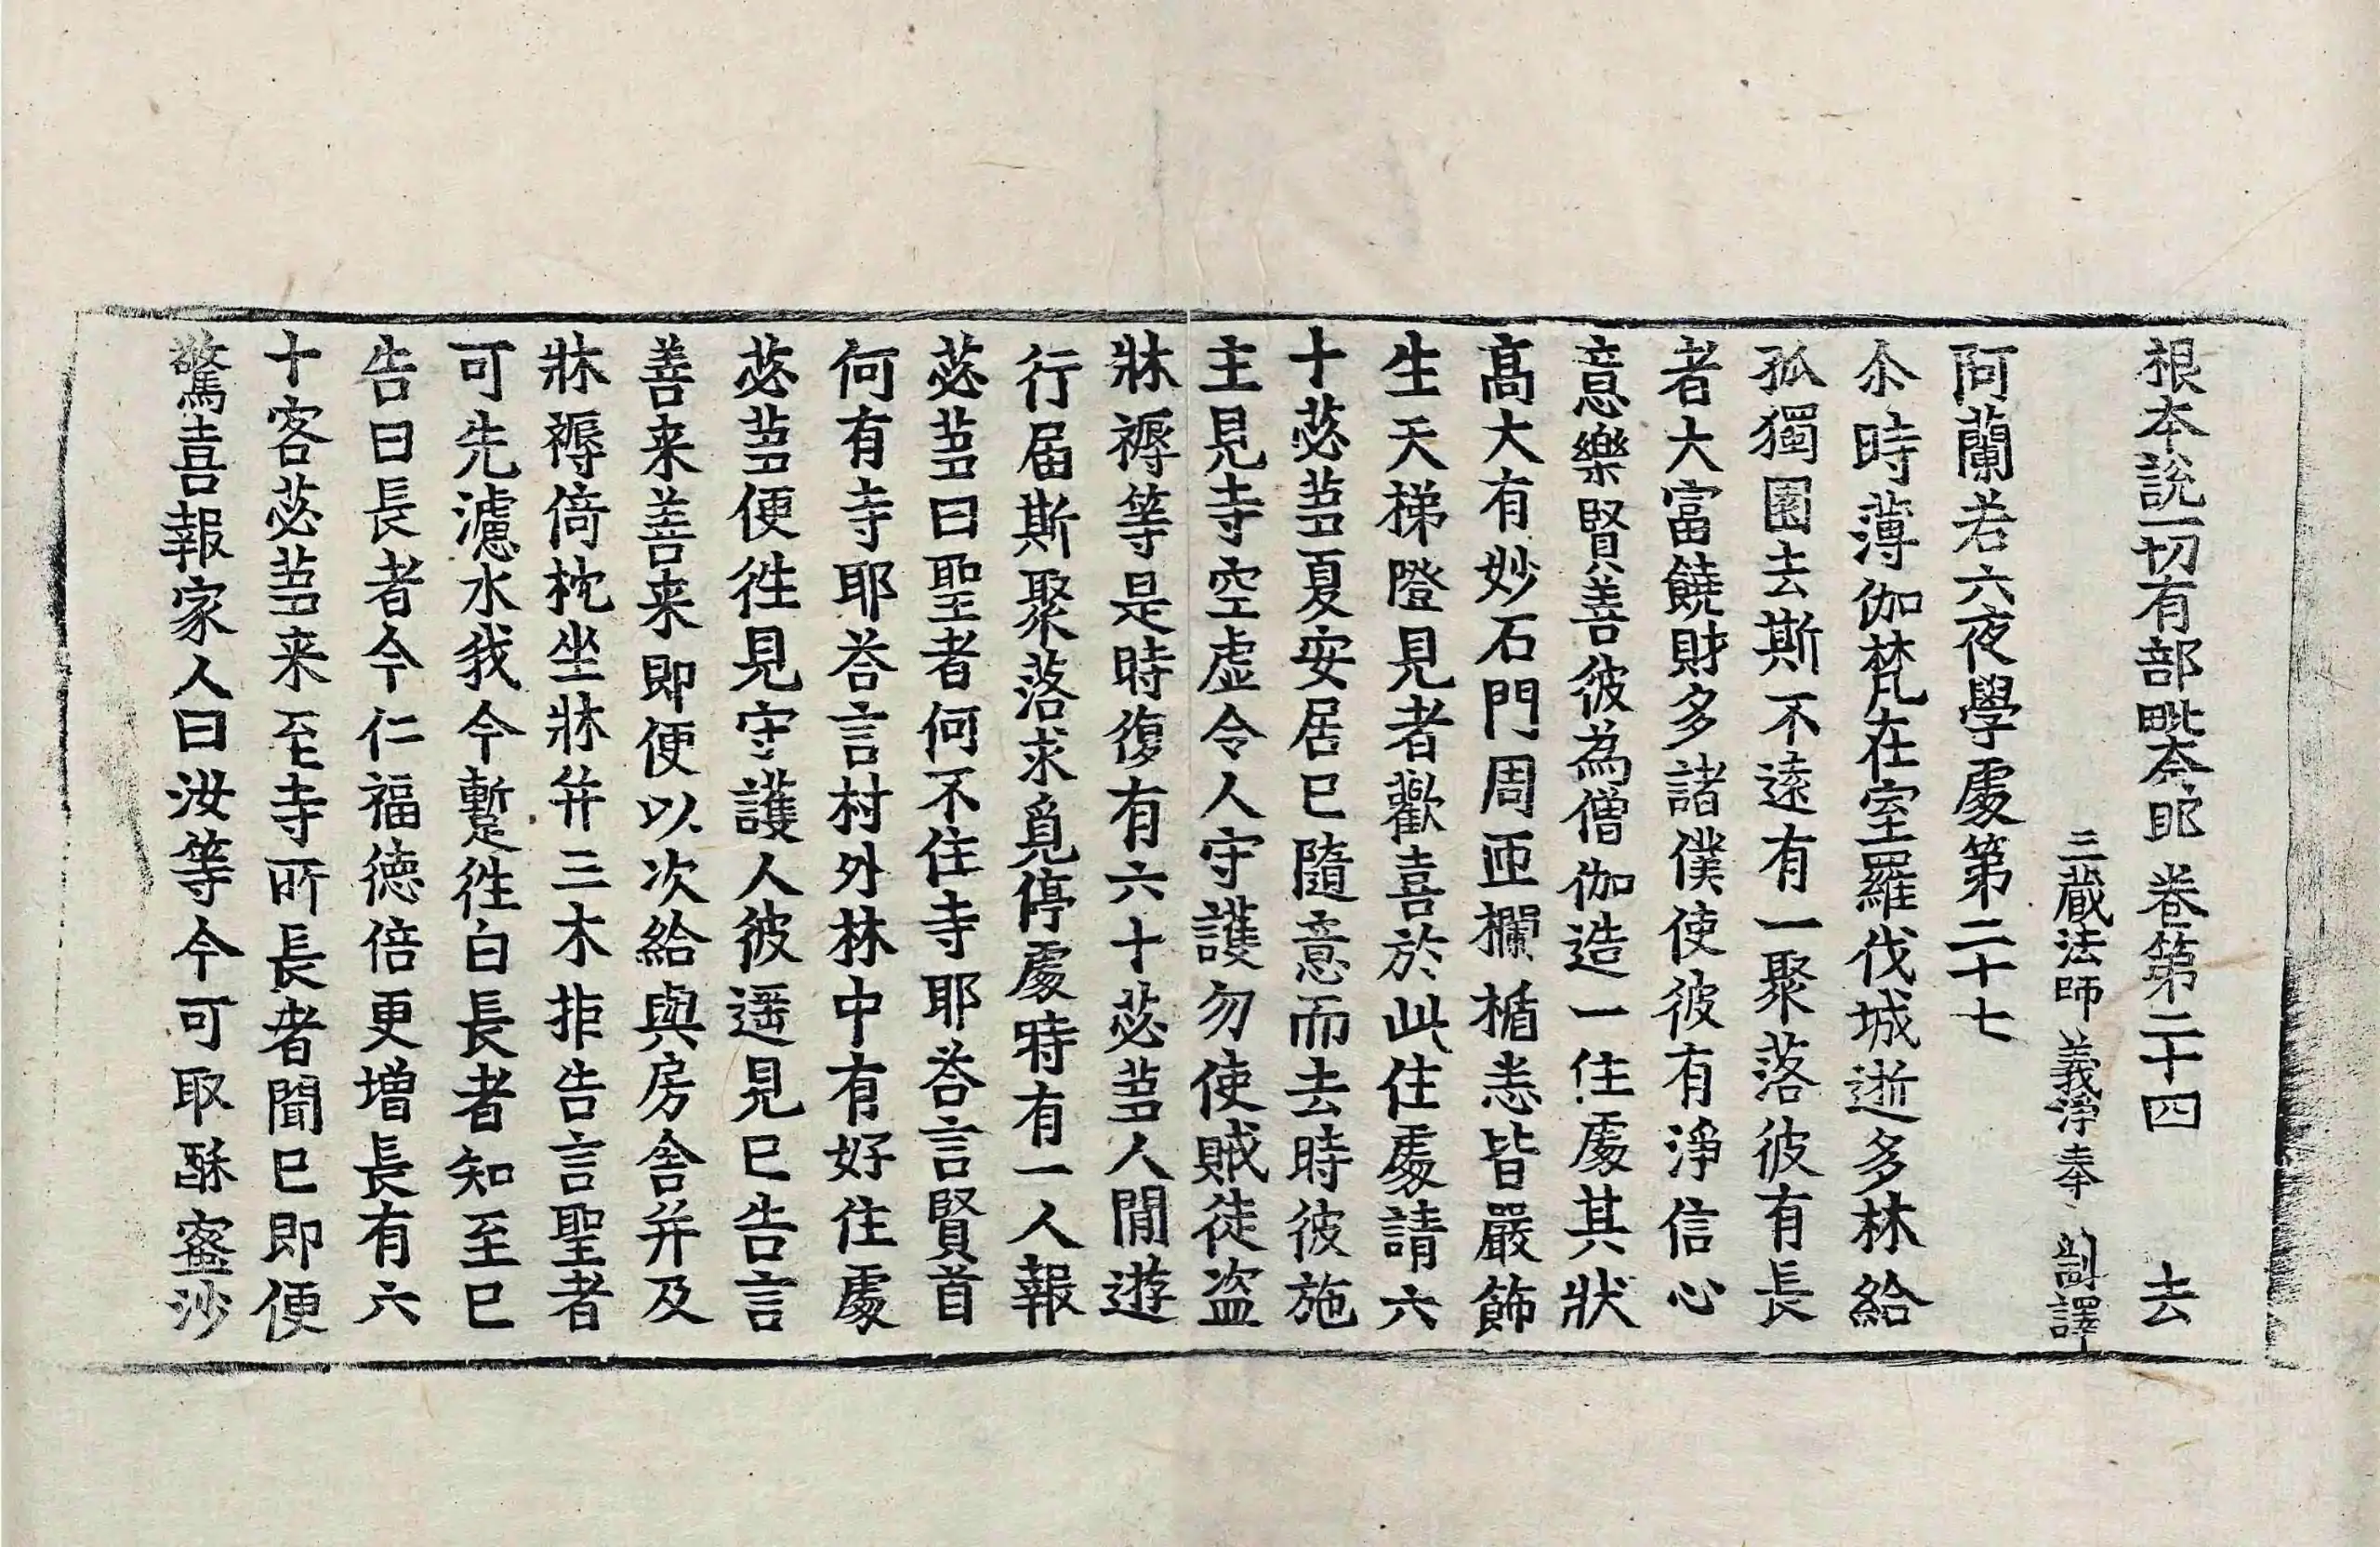 根本說一切有部毗奈耶卷第二十四 去
三藏法師義淨奉 制譯
阿蘭若六夜學處第二十七
尒時薄伽梵在室羅伐城逝多林給
孤獨園去斯不遠有一聚落彼有長
者大富饒財多諸僕使彼有淨信心
意樂賢善彼為僧伽造一住處其狀
髙大有妙石門周匝欄楯悉皆嚴飾
生天梯隥見者歡喜於此住處請六
十苾芻夏安居已隨意而去時彼施
主見寺空虛令人守護勿使賊徒盜
牀褥等是時復有六十苾芻人間遊
行届斯聚落求覓停處時有一人報
苾芻曰聖者何不住寺耶荅言賢首
何有寺耶荅言村外林中有好住處
苾芻便往見守護人彼遥見已告言
善来善来即便以次給與房舍并及
牀褥倚枕坐牀并三木拒告言聖者
可先濾水我今暫往白長者知至已
告曰長者今仁福德倍更增長有六
十客苾芻来至寺所長者聞已即便
驚喜報家人曰汝等今可取酥蜜沙